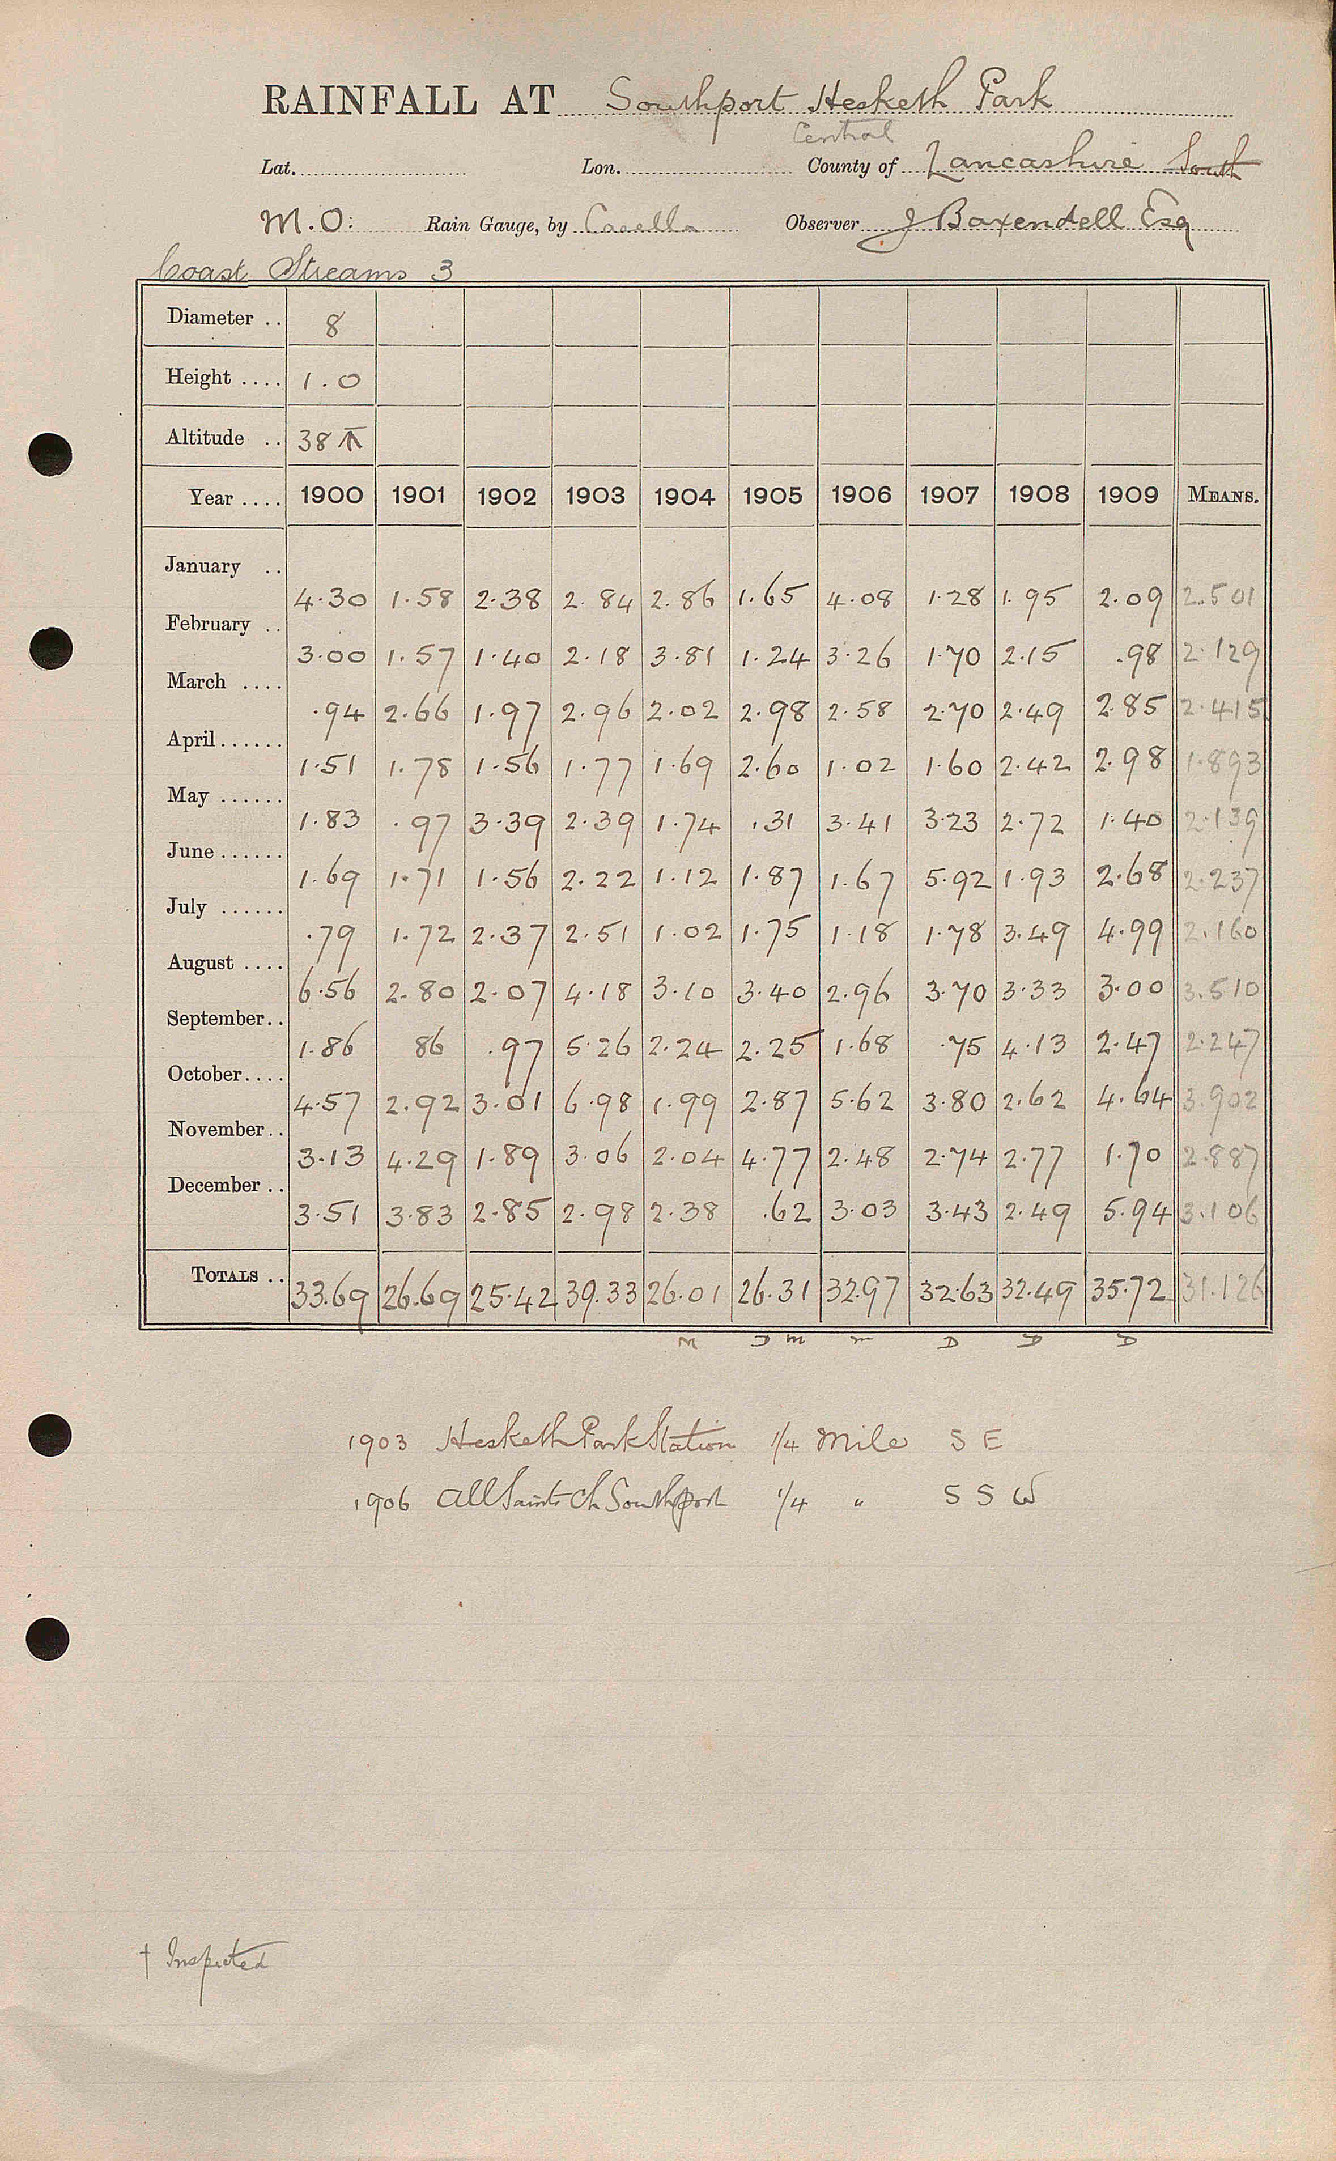 RAINFALL AT Southport Hesketh Park
Central
Lat. Lon. County of Lancashire South
M.O. Rain Gauge, by Casella Observer J Baxendell Esq
Coast Streams 3
Diameter .. 8
Height .... 1.0
Altitude .. 38
Year .... 1900 1901 1902 1903 1904 1905 1906 1907 1908 1909 MEANS.
January .. 4.30 1.58 2.38 2.84 2.86 1.65 4.08 1.28 1.95 2.09 2.501
February .. 3.00 1.57 1.40 2.18 3.81 1.24 3.26 1.70 2.15 .98 2.129
March .... .94 2.66 1.97 2.96 2.02 2.98 2.58 2.70 2.49 2.85 2.415
April...... 1.51 1.78 1.56 1.77 1.69 2.60 1.02 1.60 2.42 2.98 1.893
May ...... 1.83 .97 3.39 2.39 1.74 .31 3.41 3.23 2.72 1.40 2.139
June ...... 1.69 1.71 1.56 2.22 1.12 1.87 1.67 5.92 1.93 2.68 2.237
July ...... .79 1.72 2.37 2.51 1.02 1.75 1.18 1.78 3.49 4.99 2.160
August .... 6.56 2.80 2.07 4.18 3.10 3.40 2.96 3.70 3.33 3.00 3.510
September.. 1.86 86 .97 5.26 2.24 2.25 1.68 .75 4.13 2.47 2.247
October.... 4.57 2.92 3.01 6.98 1.99 2.87 5.62 3.80 2.62 4.64 3.902
November.. 3.13 4.29 1.89 3.06 2.04 4.77 2.48 2.74 2.77 1.70 2.887
December .. 3.51 3.83 2.85 2.98 2.38 .62 3.03 3.43 2.49 5.94 3.106
TOTALS .. 33.69 26.69 25.42 39.33 26.01 26.31 32.97 32.63 32.49 35.72 31.126
M D m m D D D
1903 Hesketh Park Station 1/4 Mile S E
1906 All Saints Ch Southport 1/4 " S S W
† Inspected